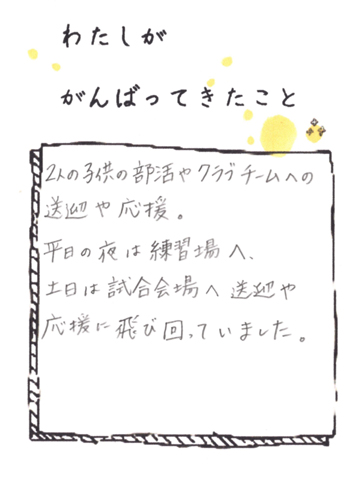 わたしが
がんばってきたこと
2人の子供の部活やクラブチームへの
送迎や応援。
平日の夜は練習場へ、
土日は試合会場へ送迎や
応援に飛び回っていました。